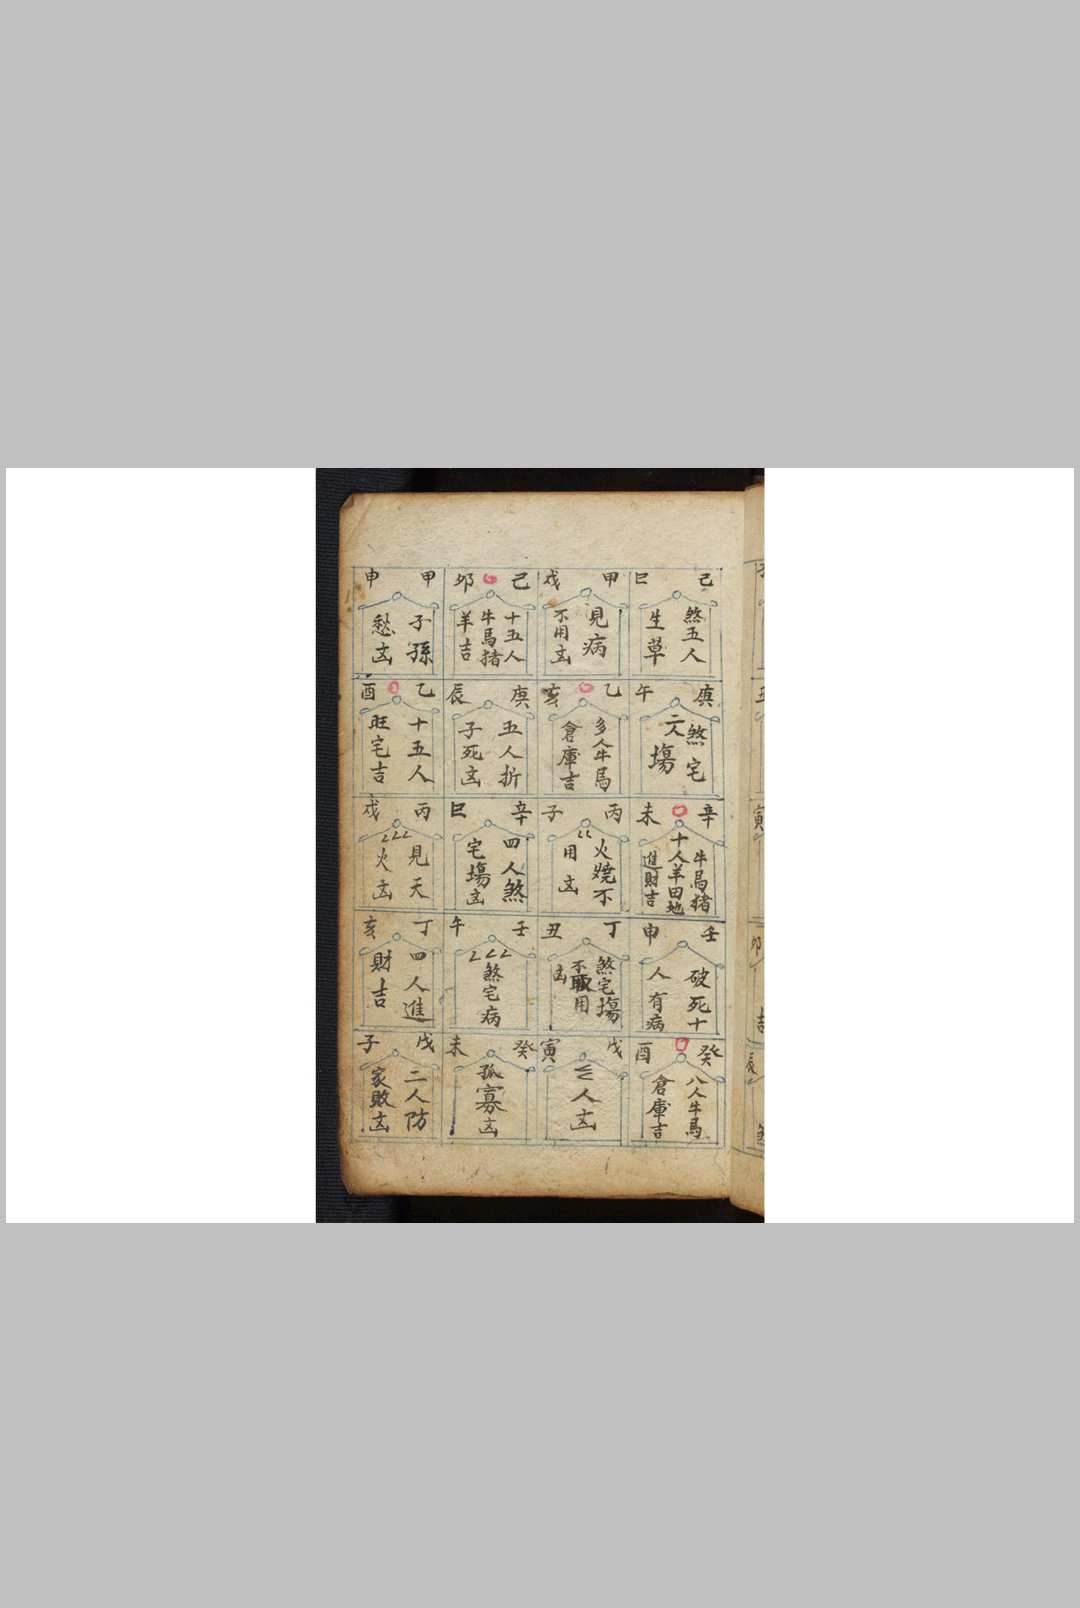 己巳
煞五人
生草
庚午
煞宅
天塲
辛未
牛馬猪
十人羊田地
進財吉
壬申
破死十
人有病
癸酉
八人牛馬
倉庫吉
甲戌
見病
不用凶
乙亥
多人牛馬
倉庫吉
丙子
火燒不
用凶
丁丑
煞宅塲
不用
凶
戊寅
人凶
己卯
十五人
牛馬猪
羊吉
庚辰
五人折
子死凶
辛巳
四人煞
宅塲凶
壬午
煞宅病
癸未
孤寡凶
甲申
子孫
愁凶
乙酉
十五人
旺宅吉
丙戌
見天
火凶
丁亥
四人進
財吉
戊子
二人防
家敗凶
寅
卯
吉
辰